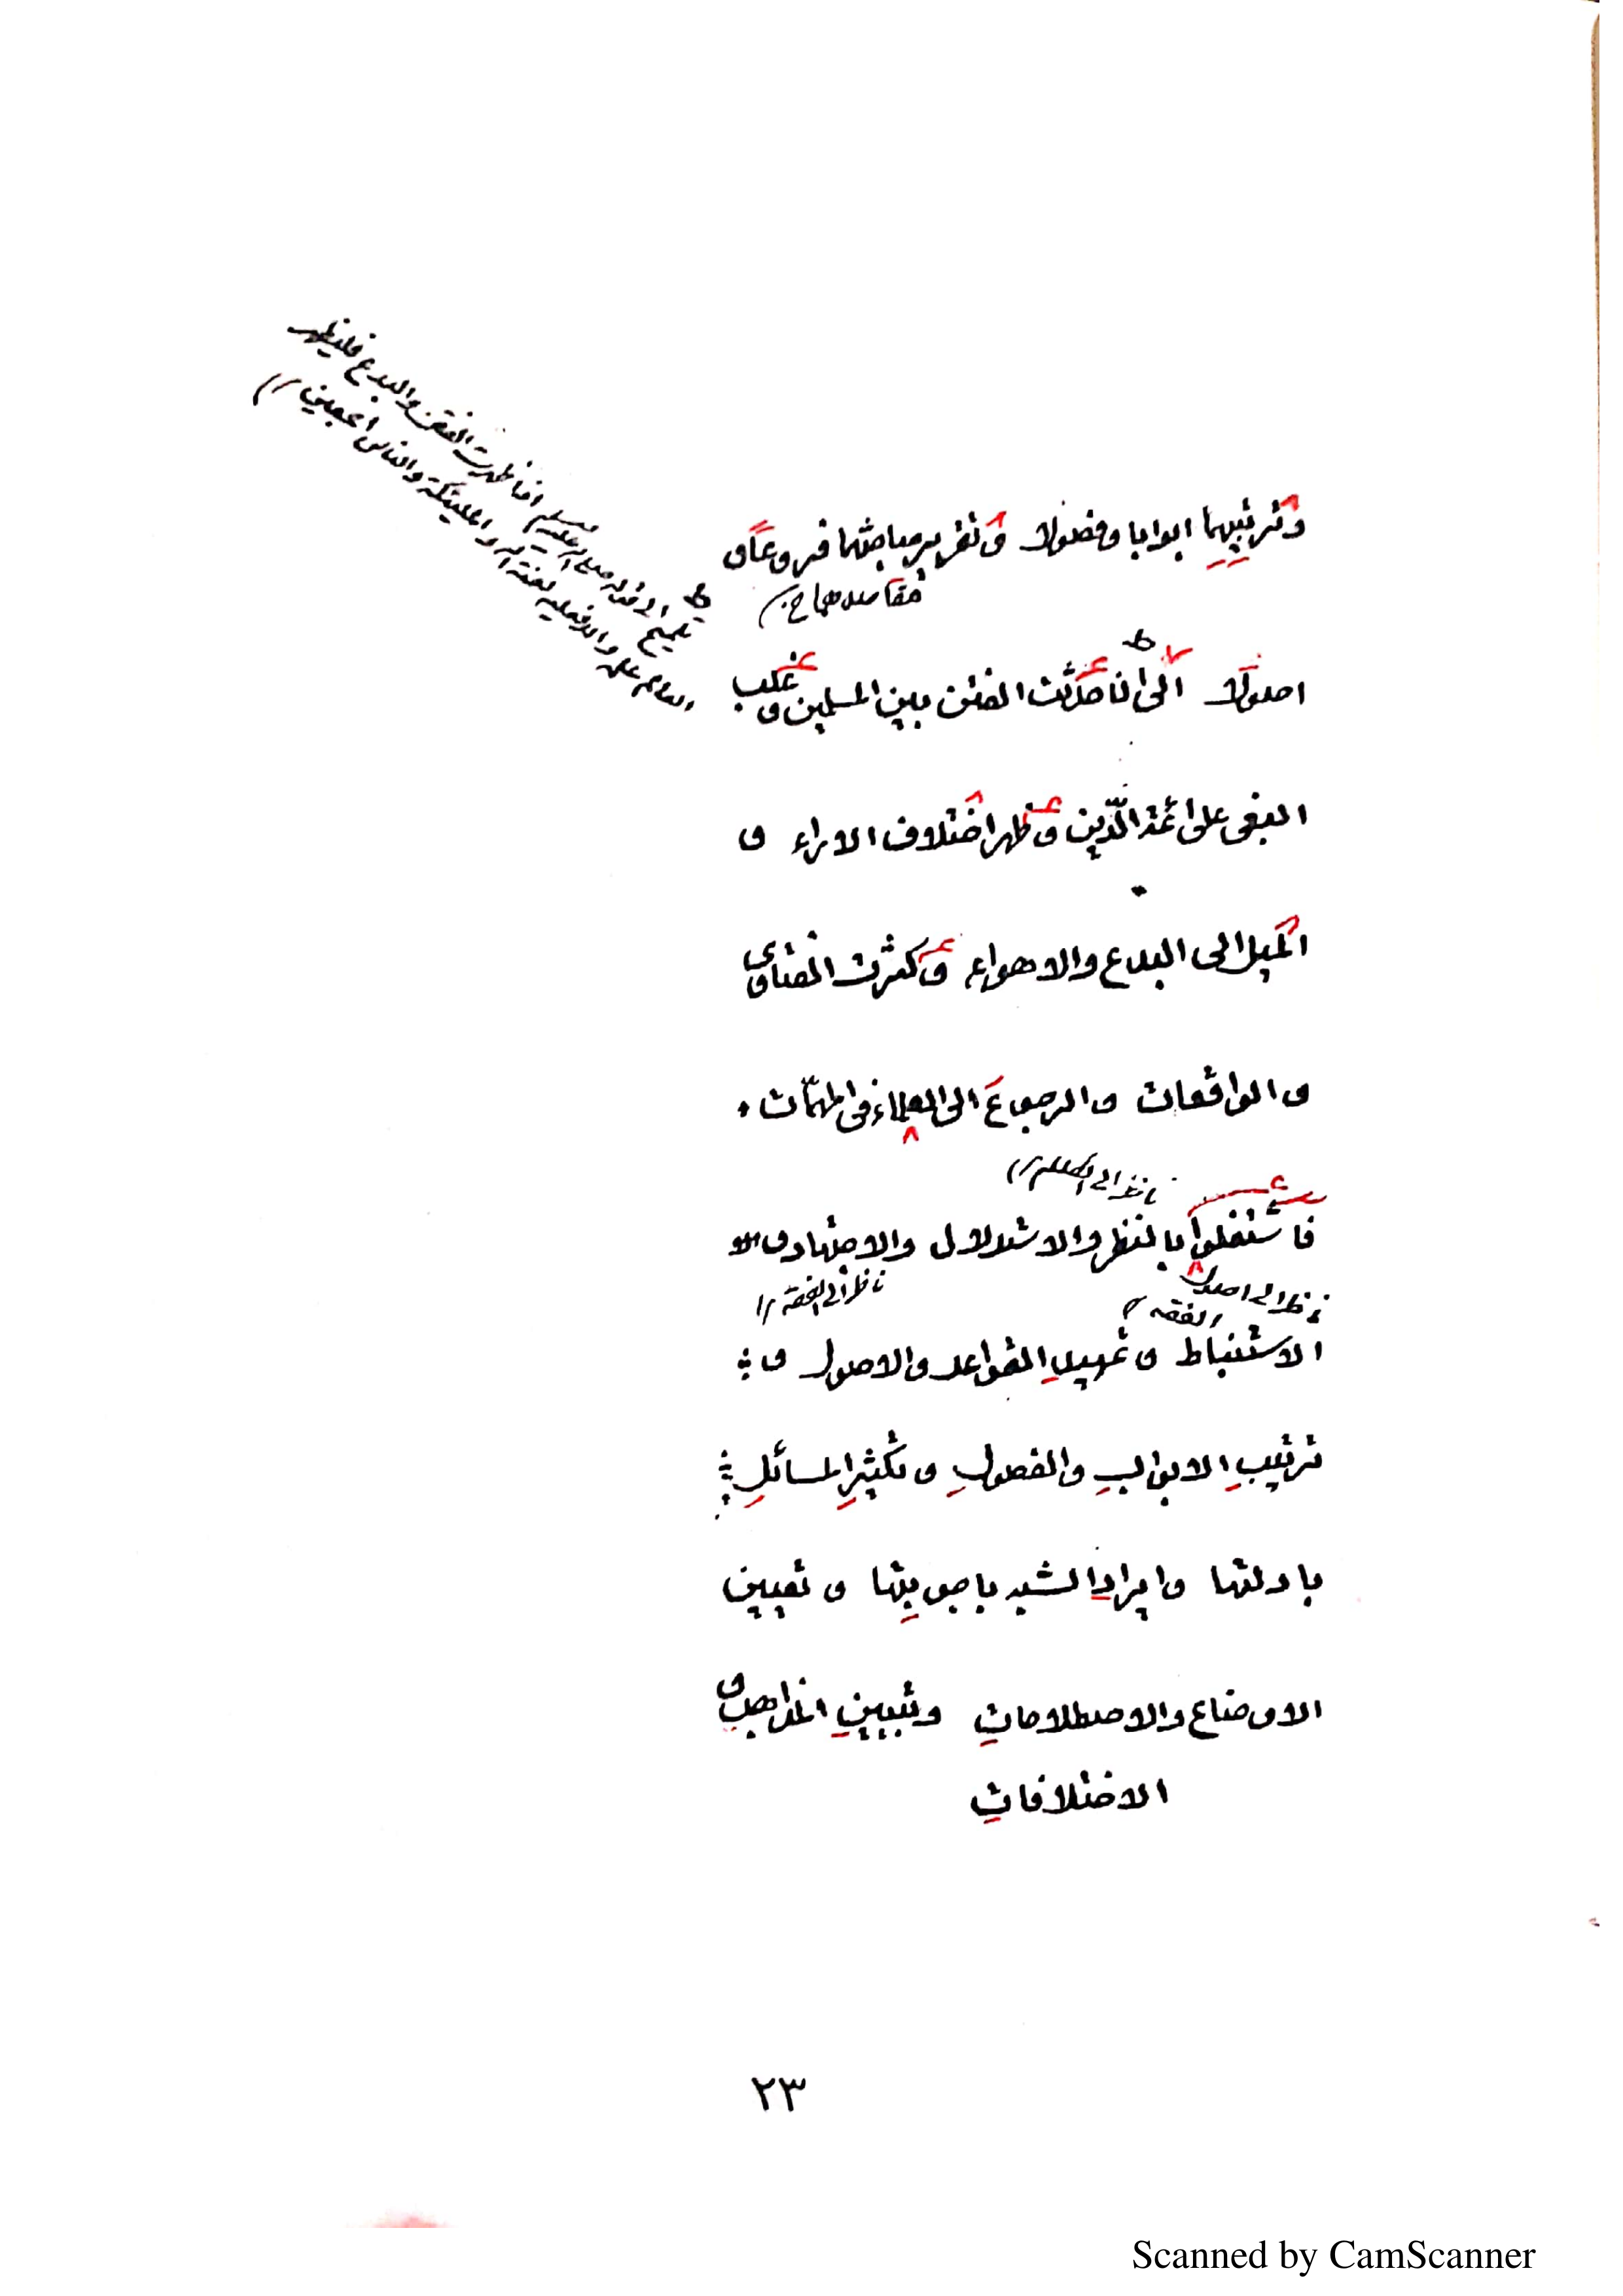 وترتيبهما ابوابا وفصولا وتقرير مباحثهما فروعا و
مقاصدهما
اصولا الى ان حدثت الفتن بين المسلمين و غلب
البغى على ائمة الدّين وظهر اختلاف الاراء و
الميل الى البدع والاهواء وكثرت الفتاوى
و الواقعات والرجوع الى العلماء فى المهمّات
ناظر الى الكلام
فاشتغلوا بالنظر والاستدلال والاجتهاد و
ناظر الى اصول الفقه
ناظر الى الفقه
الاستنباط و تمهيد القواعد والاصول و
ترتيبِ الابوابِ والفصولِ و تكثيرِ المسائلِ
بادلتها وايرادِ الشبه باجوبتِها و تعيين
الاوضاع والاصطلاحاتِ وتبيينِ المذاهبِ و
الاختلافاتِ
تلميح الى قوله صلى الله عليه وسلم اذا ظهرت الفتن والبدع فليظهر
العالم علمه والا فعليه لعنة الله والملئكة والناس اجمعين
٢٣
Scanned by CamScanner